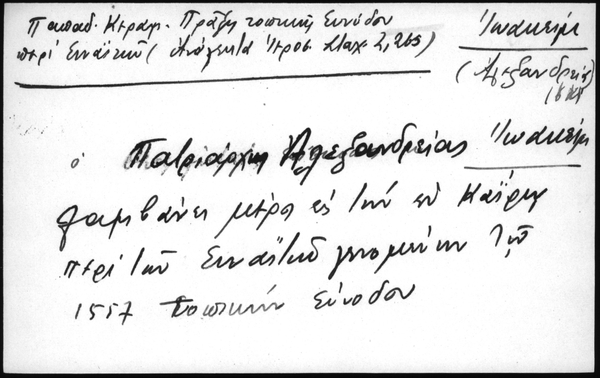 Παπαδ. Κεραμ. Πράξις τοπικῆς Συνόδου
περί Σιναϊτῶν (Ἀνάλεκτα Ἱεροσ. Σταχ. 2, 265)
Ἰωακείμ
(Ἀλεξανδρείας
ὁ Πατριάρχης Ἀλεξανδρείας Ἰωακείμ
λαμβάνει μέρος εἰς τήν ἐν Καΐρῳ
περί τοῦ Σιναϊτοῦ γενομένην τῷ
1557 τοπικήν Σύνοδον